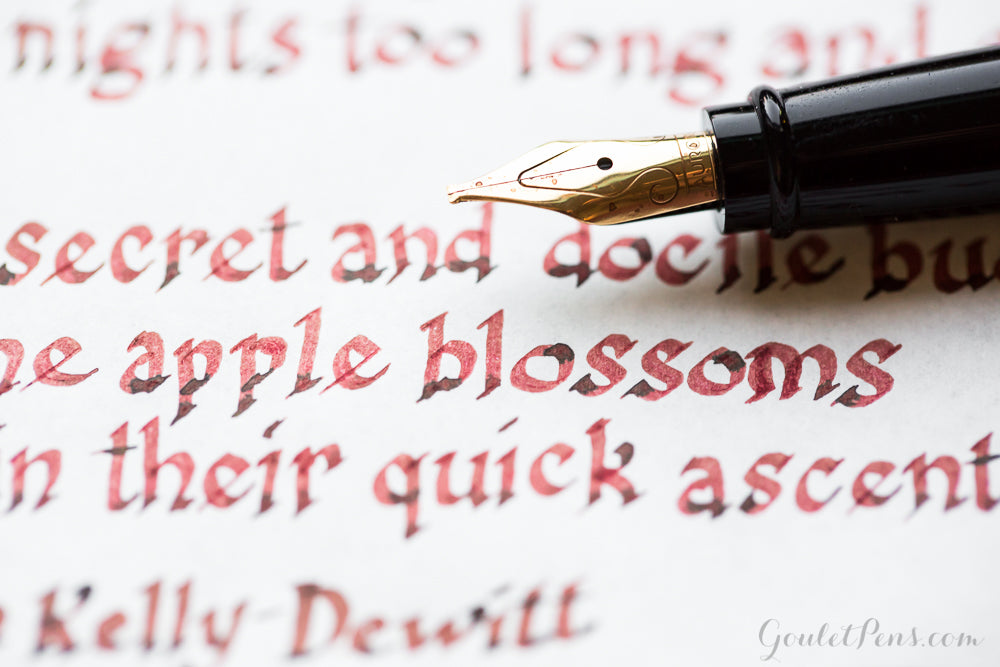 nights too long and
secret and docile bu
ne apple blossoms
in their quick ascent
Kelly Dewitt
GouletPens.com